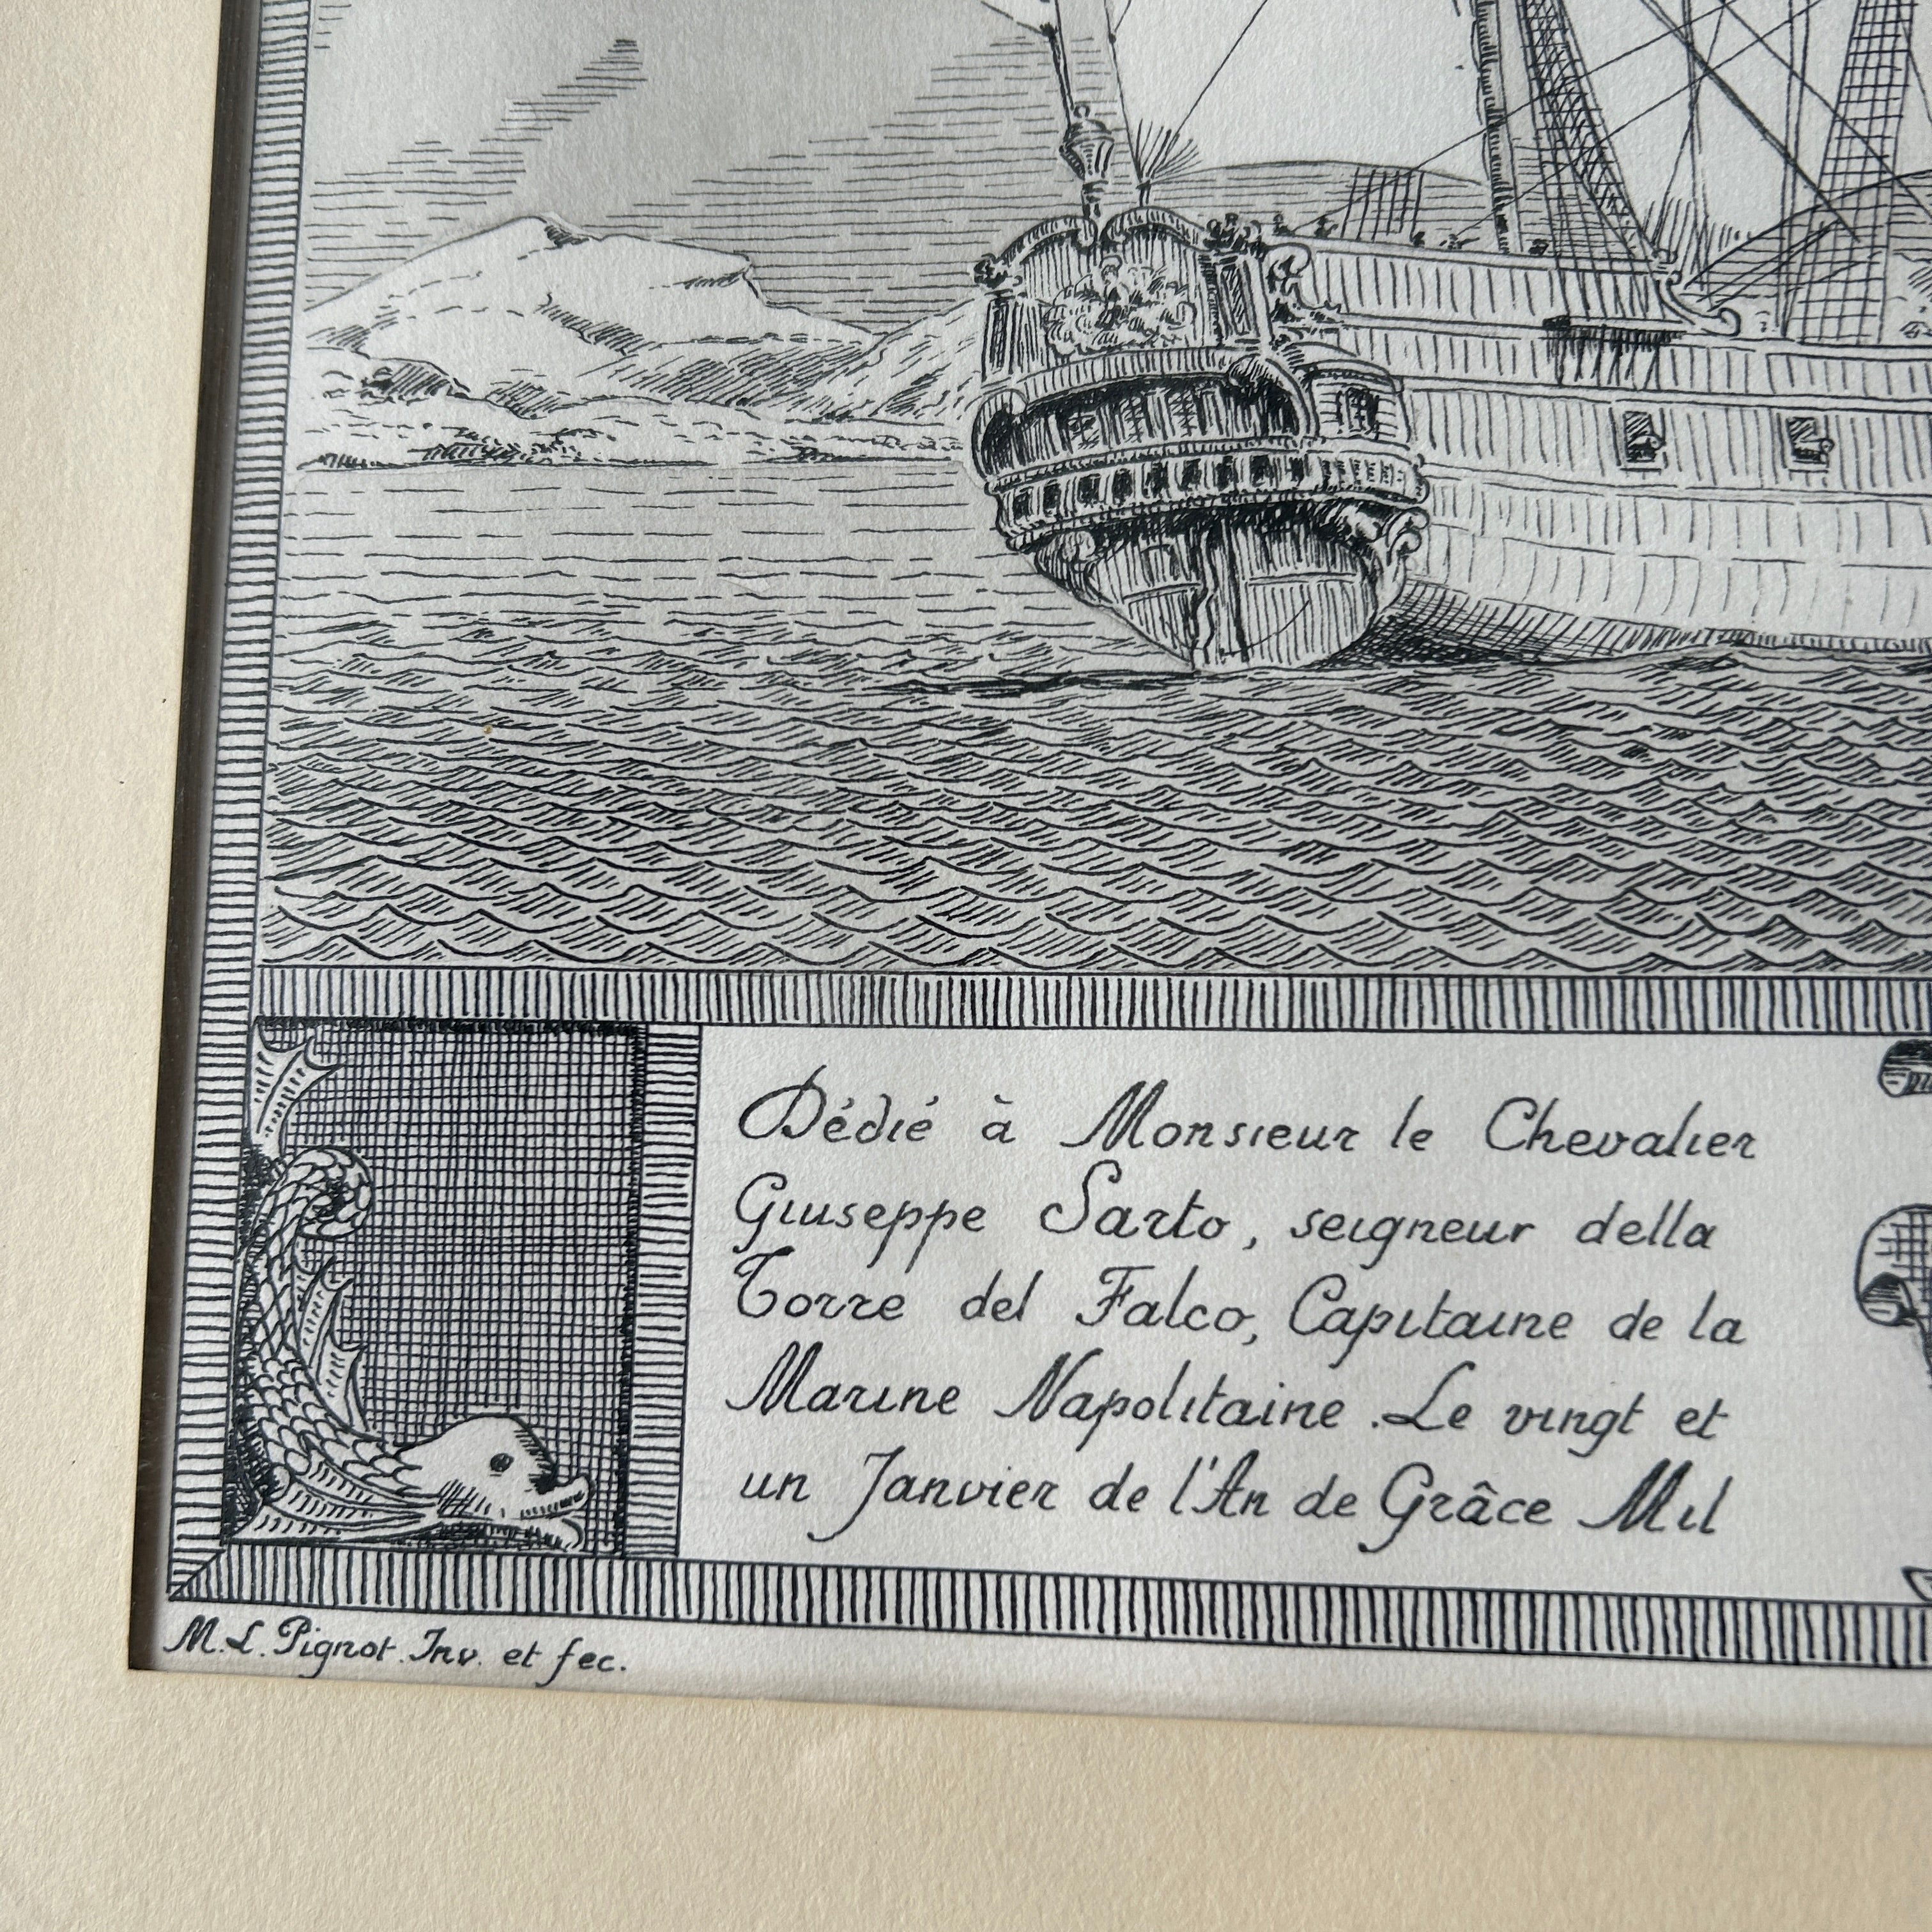 Dédié à Monsieur le Chevalier
Giuseppe Sarto, seigneur della
Torre del Falco, Capitaine de la
Marine Napolitaine. Le vingt et
un Janvier de l'An de Grâce Mil
M.L. Pignot. Inv. et fec.